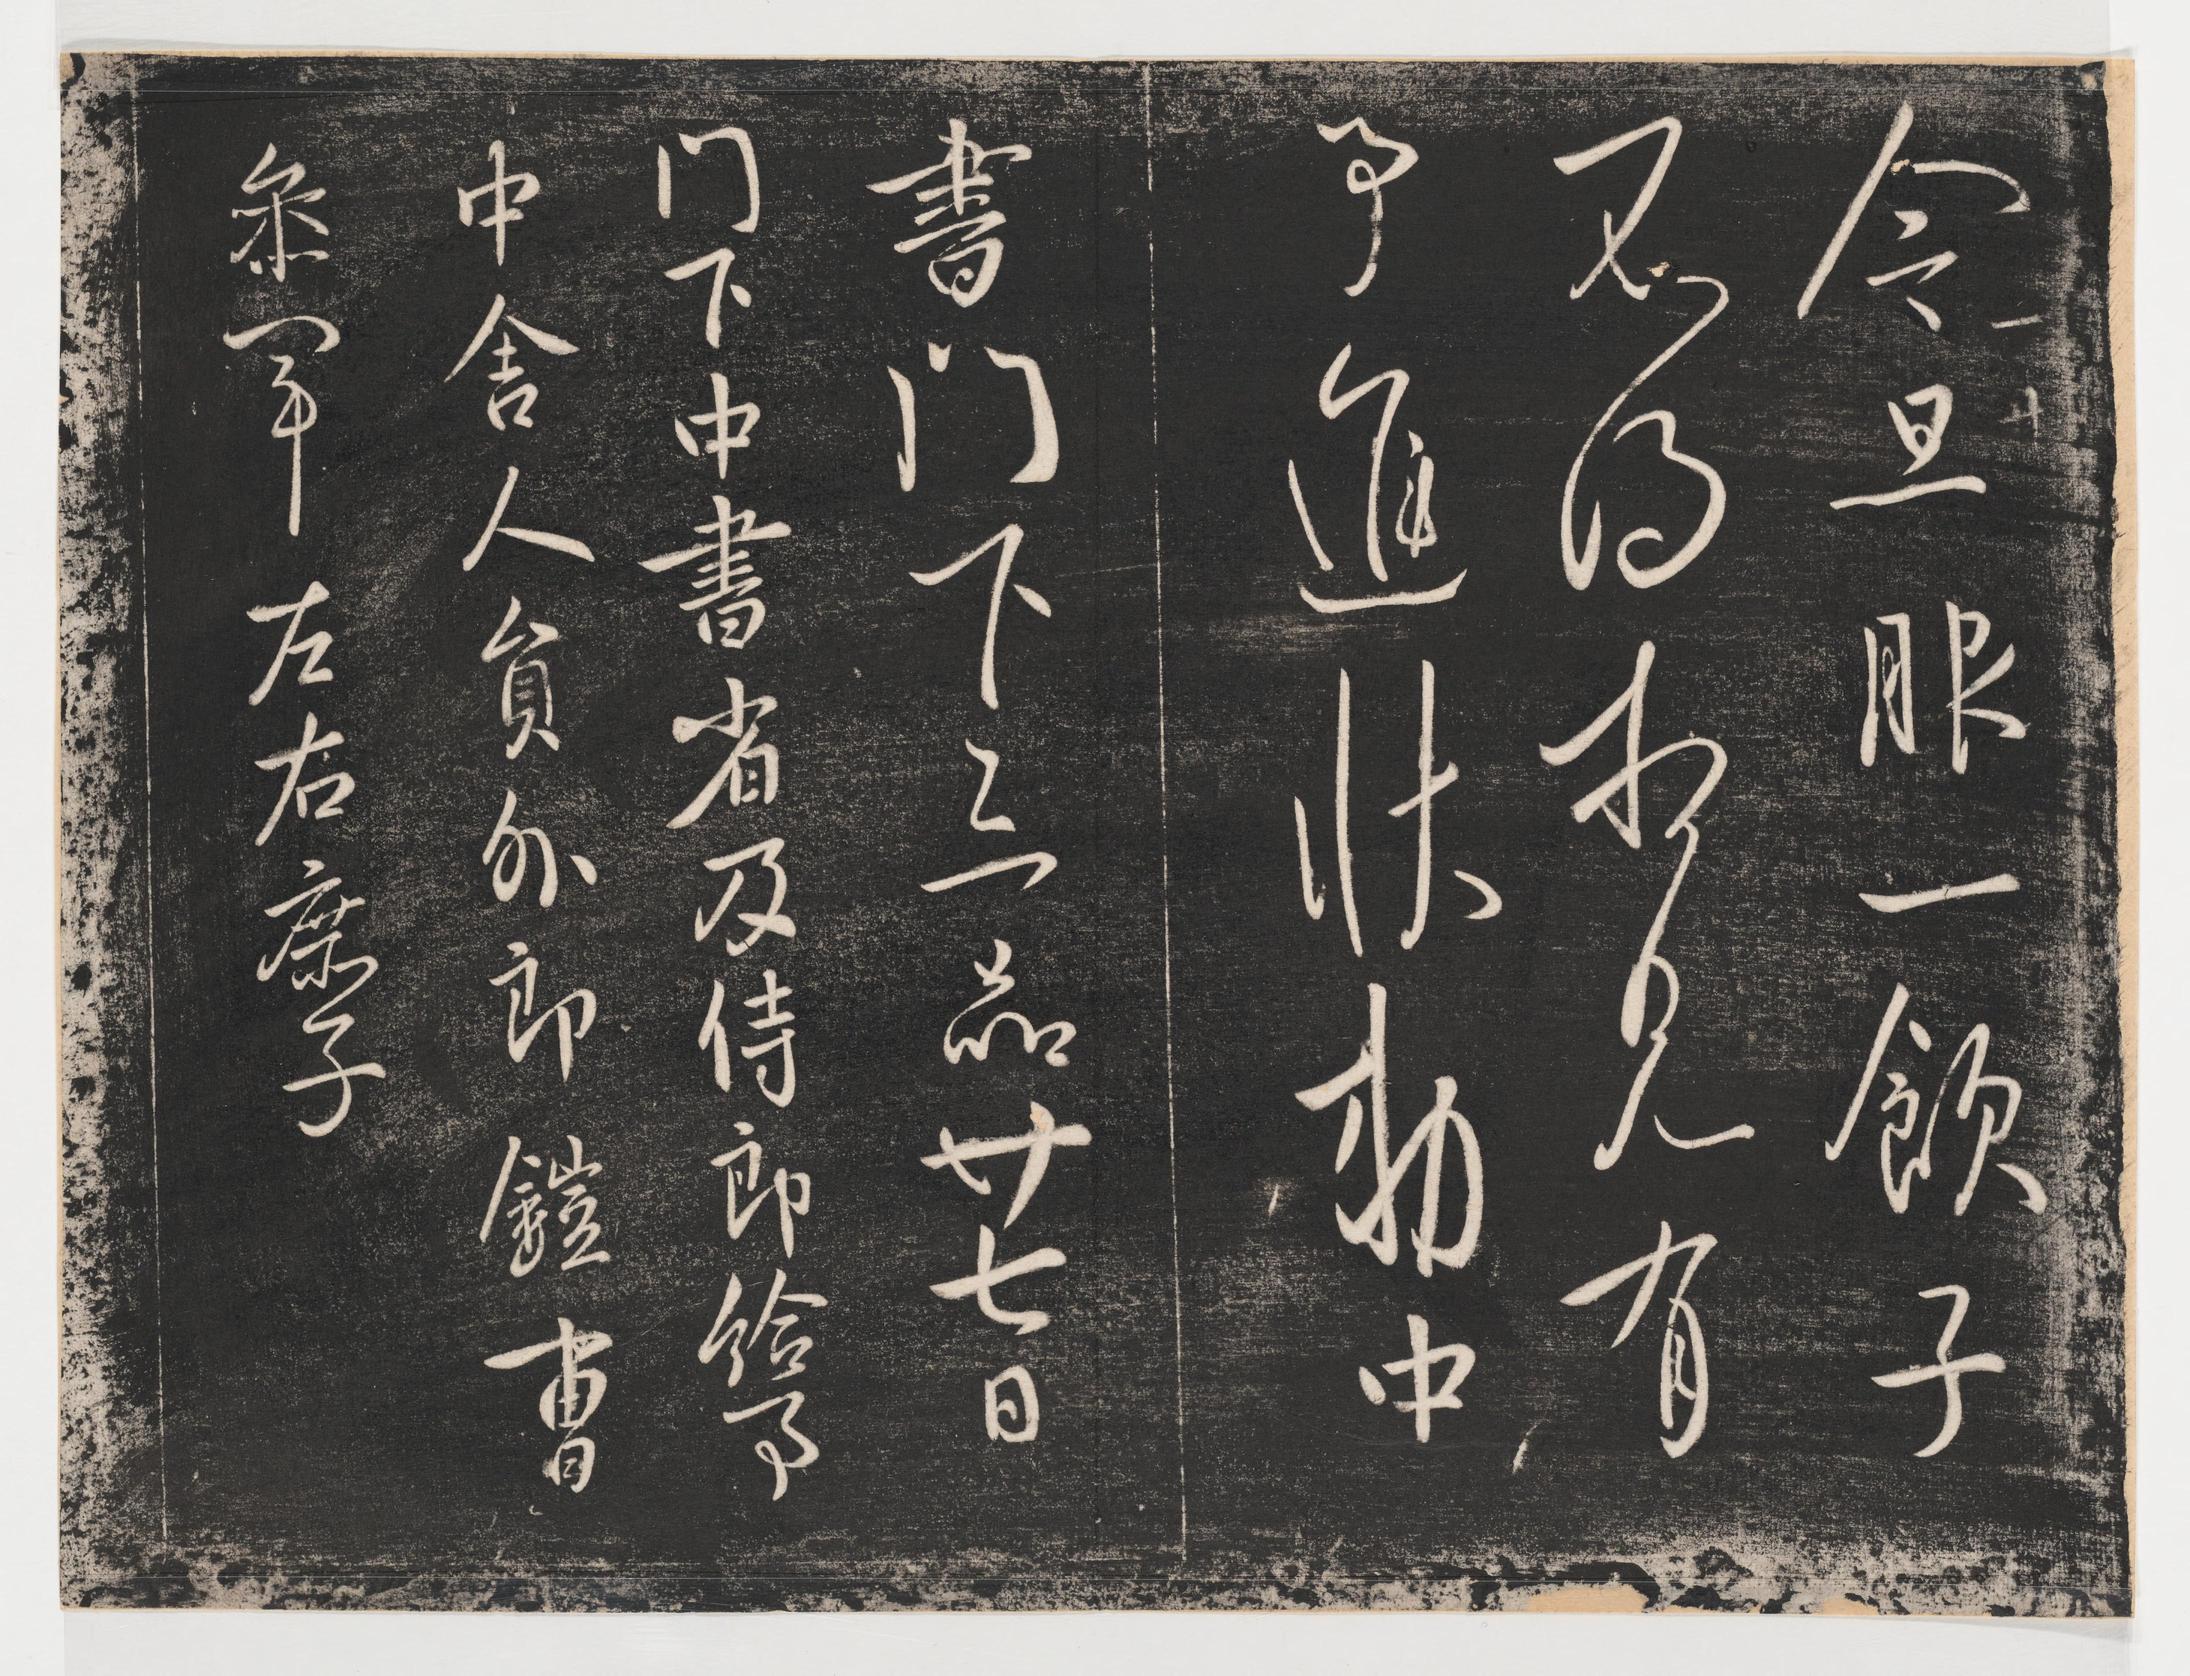 今旦服一飲子
不得相見有
事進狀勅中
書門下三品廿七日
門下中書省及侍郎給事
中舍人員外郎鎧曹
參軍左右庶子